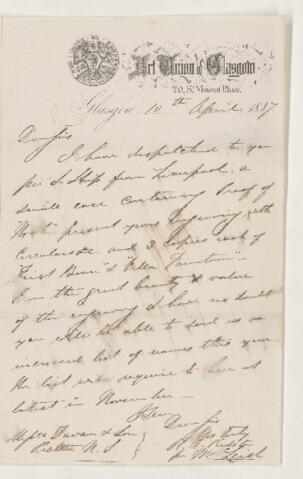 Art Union of Glasgow
20, St Vincent Place,
Glasgow 10th April 1857
Dear Sirs
I have despatched to you
per S. Ship from Liverpool, a
small case containing Proof of
present years engraving with
Circulars &c and 3 copies each of
From the great beauty & value
of the engraving I have no doubt
you will be able to send us an
increased list of names this year
The list we require to have at
latest in November
Dear Sirs
Messrs Dawson & Son
Pictou N. S.
Yrs truly